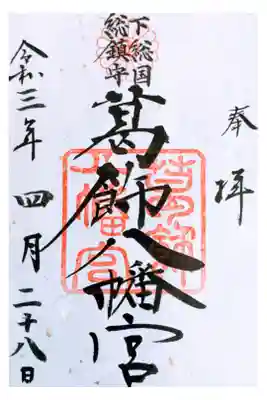 奉拝
下総国
総鎮守
葛飾八幡宮
葛飾八幡宮
令和三年四月二十八日